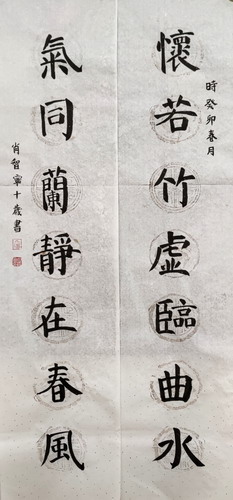 懷若竹虛臨曲水
時癸卯春月
氣同蘭靜在春風
肖智寧十歲書